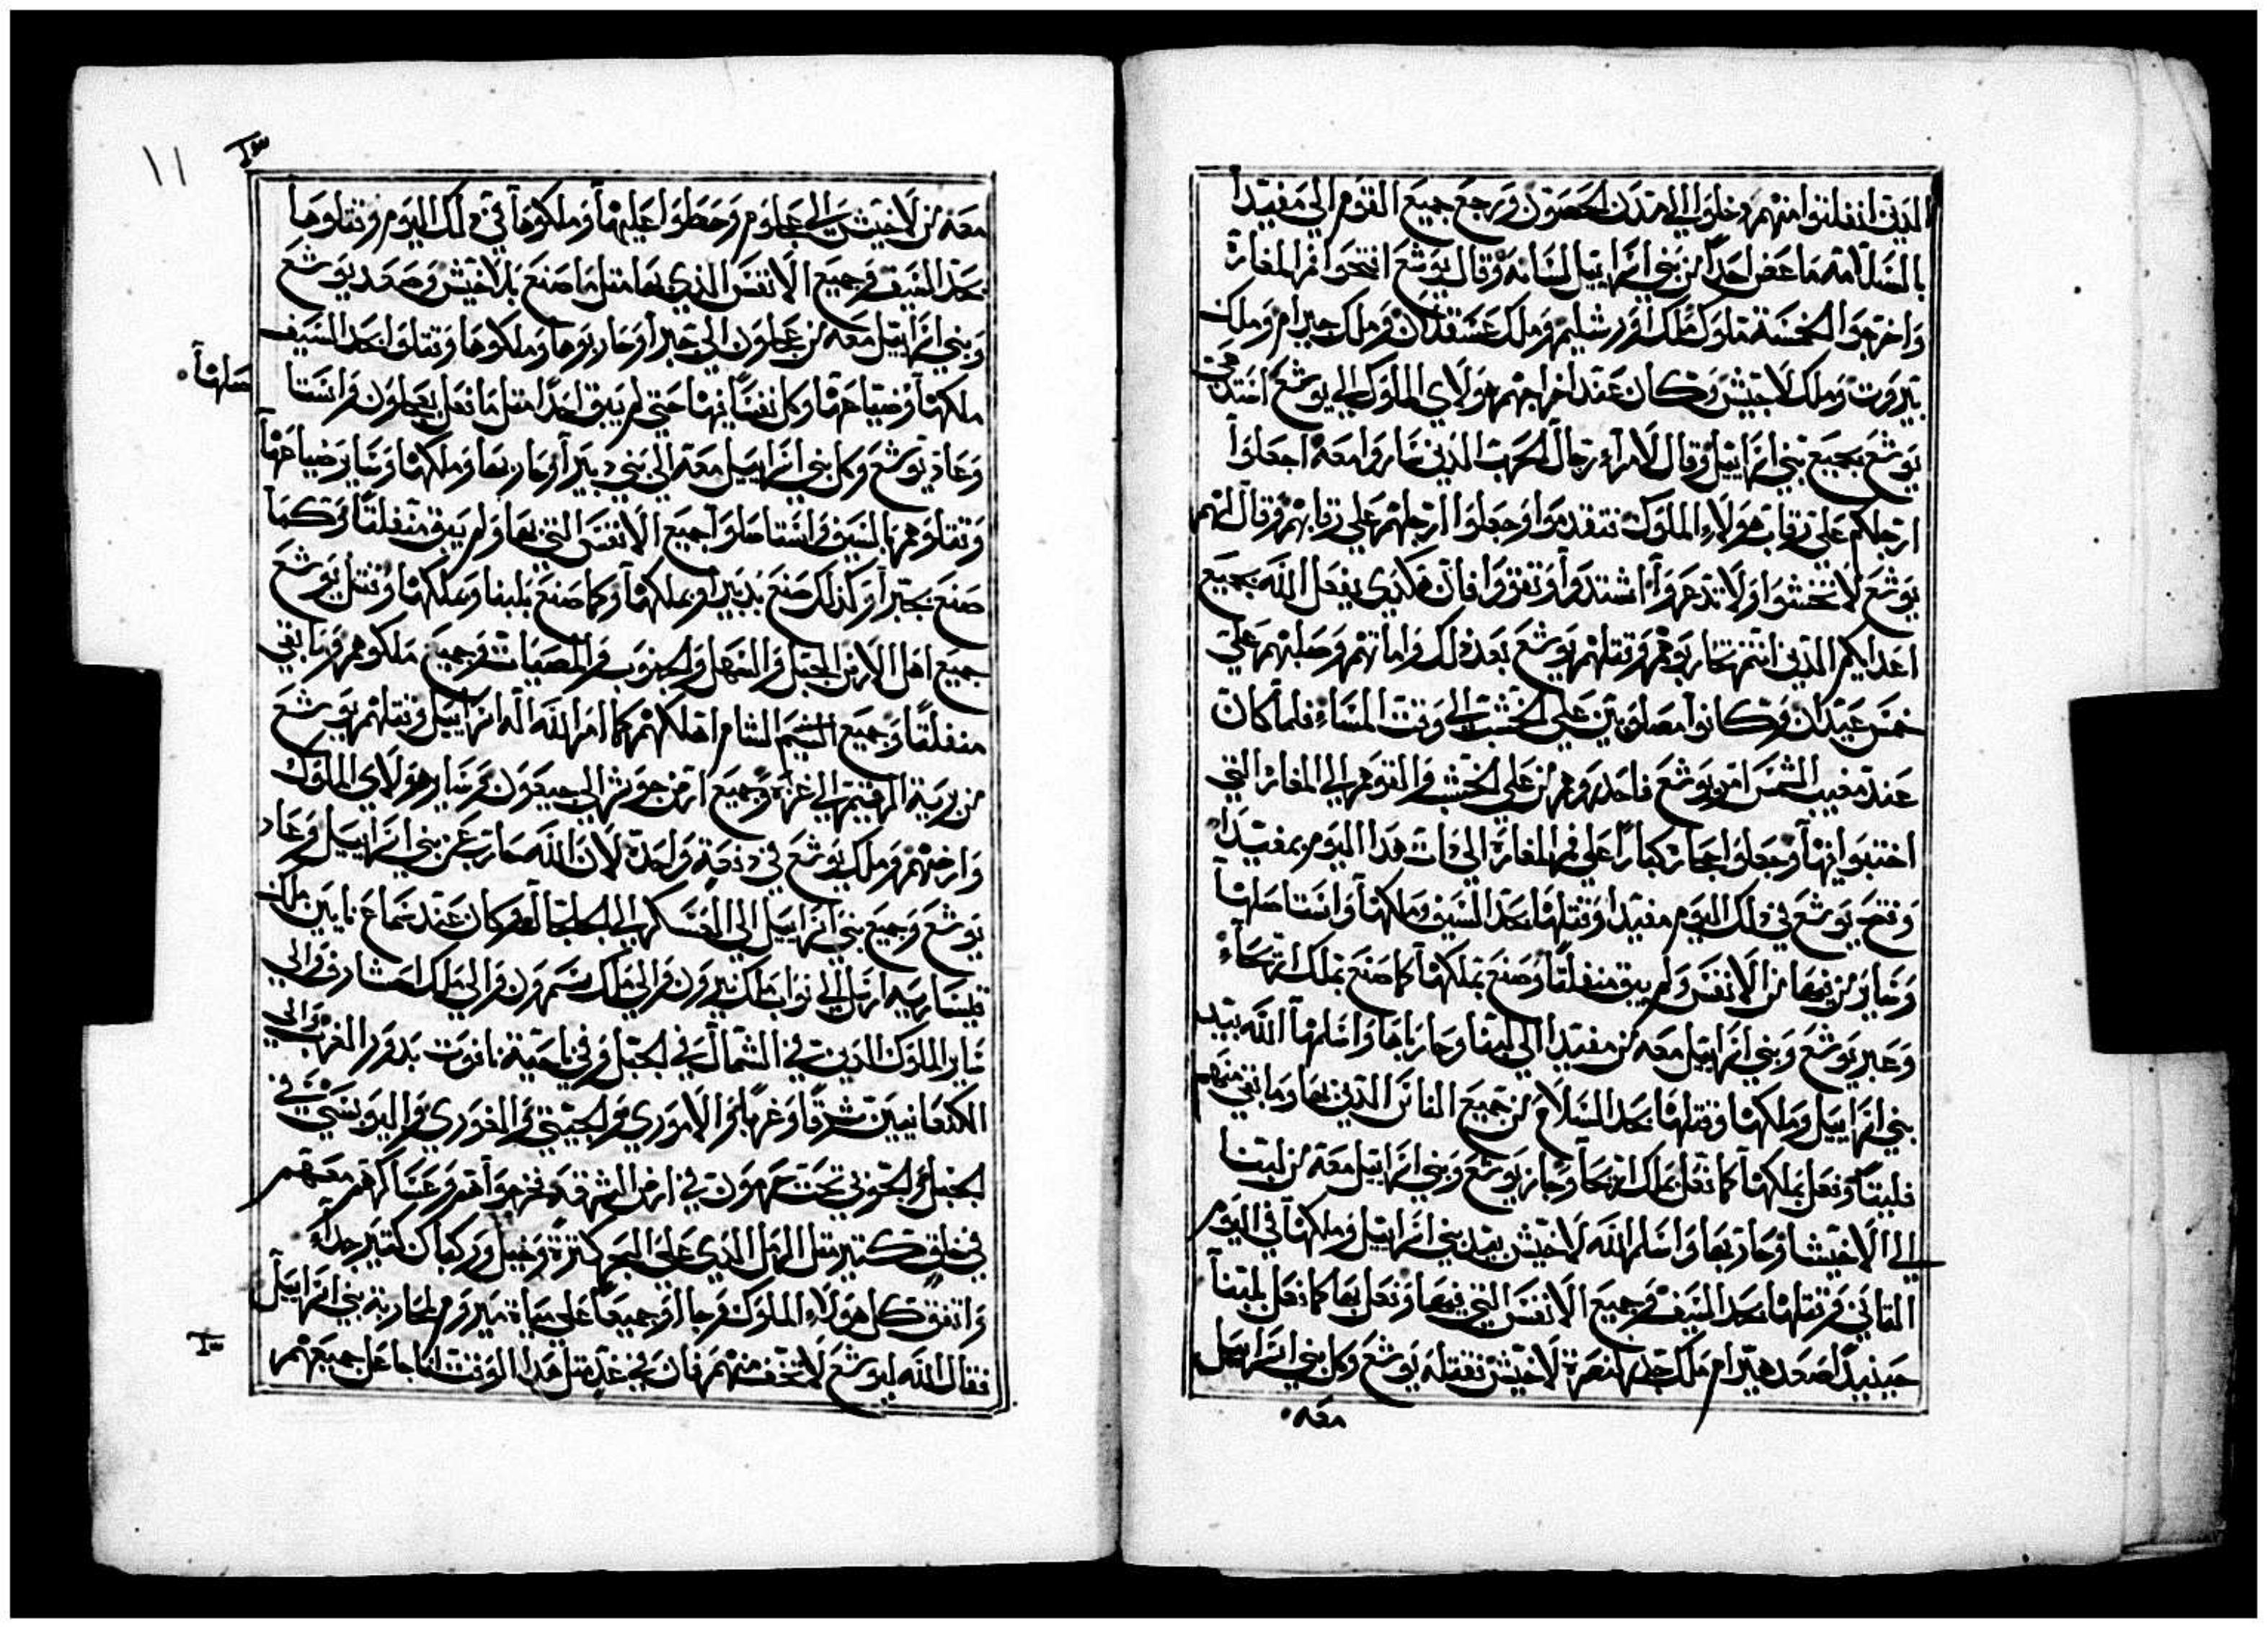 الذين انفلتوا منهم دخلوا الي المدن الحصون ورجع جميع القوم الي مفيدا
بالسلامه ما عض احدا من بني اسراييل لسانه وقال يوشع افتحوا فم المغارة
واخرجوا الخمسة ملوك ملك اورشليم وملك عسقلان وملك حبرام وملك
يتروت وملك لاخيش وكان عند اخراجهم هولاي الملوك الي يوشع
يوشع بجميع بني اسراييل وقال لامراء رجال الحرب الذين ساروا معه اجعلوا
ارجلكم علي رقاب هولاء الملوك فتقدموا وجعلوا ارجلهم علي رقابهم وقال لهم
يوشع لا تخشوا ولا تذعروا اشتدوا وتقووا فان هكذي يفعل الله بجميع
اعدايكم الذين انتم تحاربوهم وقتلهم يوشع بعد ذلك واماتهم وصلبهم علي
خمس عيدان وكانوا مصلوبين علي الخشب الي وقت المساء فلما كان
عند مغيب الشمس امر يوشع فاحدروهم من علي الخشب والقوهم الي المغار التي
اختبوا فيها وجعلوا حجار كبارا علي فم المغارة الي ذات هذا اليوم بمفيدا
وفتح يوشع في ذلك اليوم مفيدا وقتلها بحد السيف وملكها واستاصلها
وساير من فيها من الانفس ولم يبق منفلتا وصنع بملكها كما صنع بملك اريحاء
وعبر يوشع وبني اسراييل معه من مفيدا الي لبنا وحارباها واسلمها الله بيد
بني اسراييل وملكها وقتلها بحد السلاح من جميع الناس الذين بها وما بقي منهم
فليتا وفعل بملكها كما فعل بملك اريحا وجاز يوشع وبني اسراييل معه من لبنا
الي الاخيشا وحاربها واسلم الله لاخيش بيد بني اسراييل وملكها في اليوم
الثاني وقتلها بحد السيف وجميع الانفس التي فيها وفعل بها كما فعل بلبنا
حينيذ صعد هيرام ملك جدر لنصرة لاخيش فقتله يوشع وكل بني اسراييل
معه
١١
معه من لاخيش الي عجلوم وحطوا عليها وملكوها في ذلك اليوم وقتلوها
بحد السيف وجميع الانفس الذي بها مثل ما صنع بلاخيش وصعد يوشع
وبني اسراييل معه من عجلون الي حبرا وحاربوها وملكوها وقتلوا بحد السيف
ملكها وضياحها وكل نفسا فيها حتي لم يبق احدا مثل ما فعل بعجلون واستا
صلها
وعاد يوشع وكل بني اسراييل معه الي بني دبيرا وحاربها وملكها وساير ضياحها
وقتلوهم بالسيف واستاصلوا جميع الانفس التي بها ولم يبق منفلتا وكما
صنع بحبرا وكذلك صنع بدبيرا وبملكها وكما صنع بلبنا وبملكها وقتل يوشع
جميع اهل الارض الجبل والسهل والجنوب والمصبات وجميع ملكوهم وما بقي
منفلتا وجميع النسم الشام اهلكهم كما امر الله اله اسراييل وقتلهم يوشع
من برية الرقيم الي غزه وجميع ارض جوشر الي جبعون وساير هولاي الملوك
وارضهم وملك يوشع في دفعة واحدة لان الله حارب عن بني اسراييل وعاد
يوشع وجميع بني اسراييل الي العسكر الي الجلجال وكان عند سماع نابين ملك
قيساريه ارسل الي نواب ملك نيرون والي ملك سمرون والي ملك احشاف والي
ساير الملوك الذين في الشمال في الجبل وفي ناحية نانوت بدور الغرب والي
الكنعانيين شرقا وغربا والاموري والحيثي والفوري واليوبسي في
الجبل والحوني تحت حرمون في ارض الشرقه فخرجوا هم وعساكرهم معهم
في خلق كثير مثل الرمل الذي علي البحر كثرة وخيل وركبان كثير جداء
واتفق كل هولاء الملوك وجاوا جميعا علي مياة ميروم لمحاربة بني اسراييل
فقال الله ليوشع لا تخف منهم فان في غد مثل هذا الوقت انا جاعل جميعهم